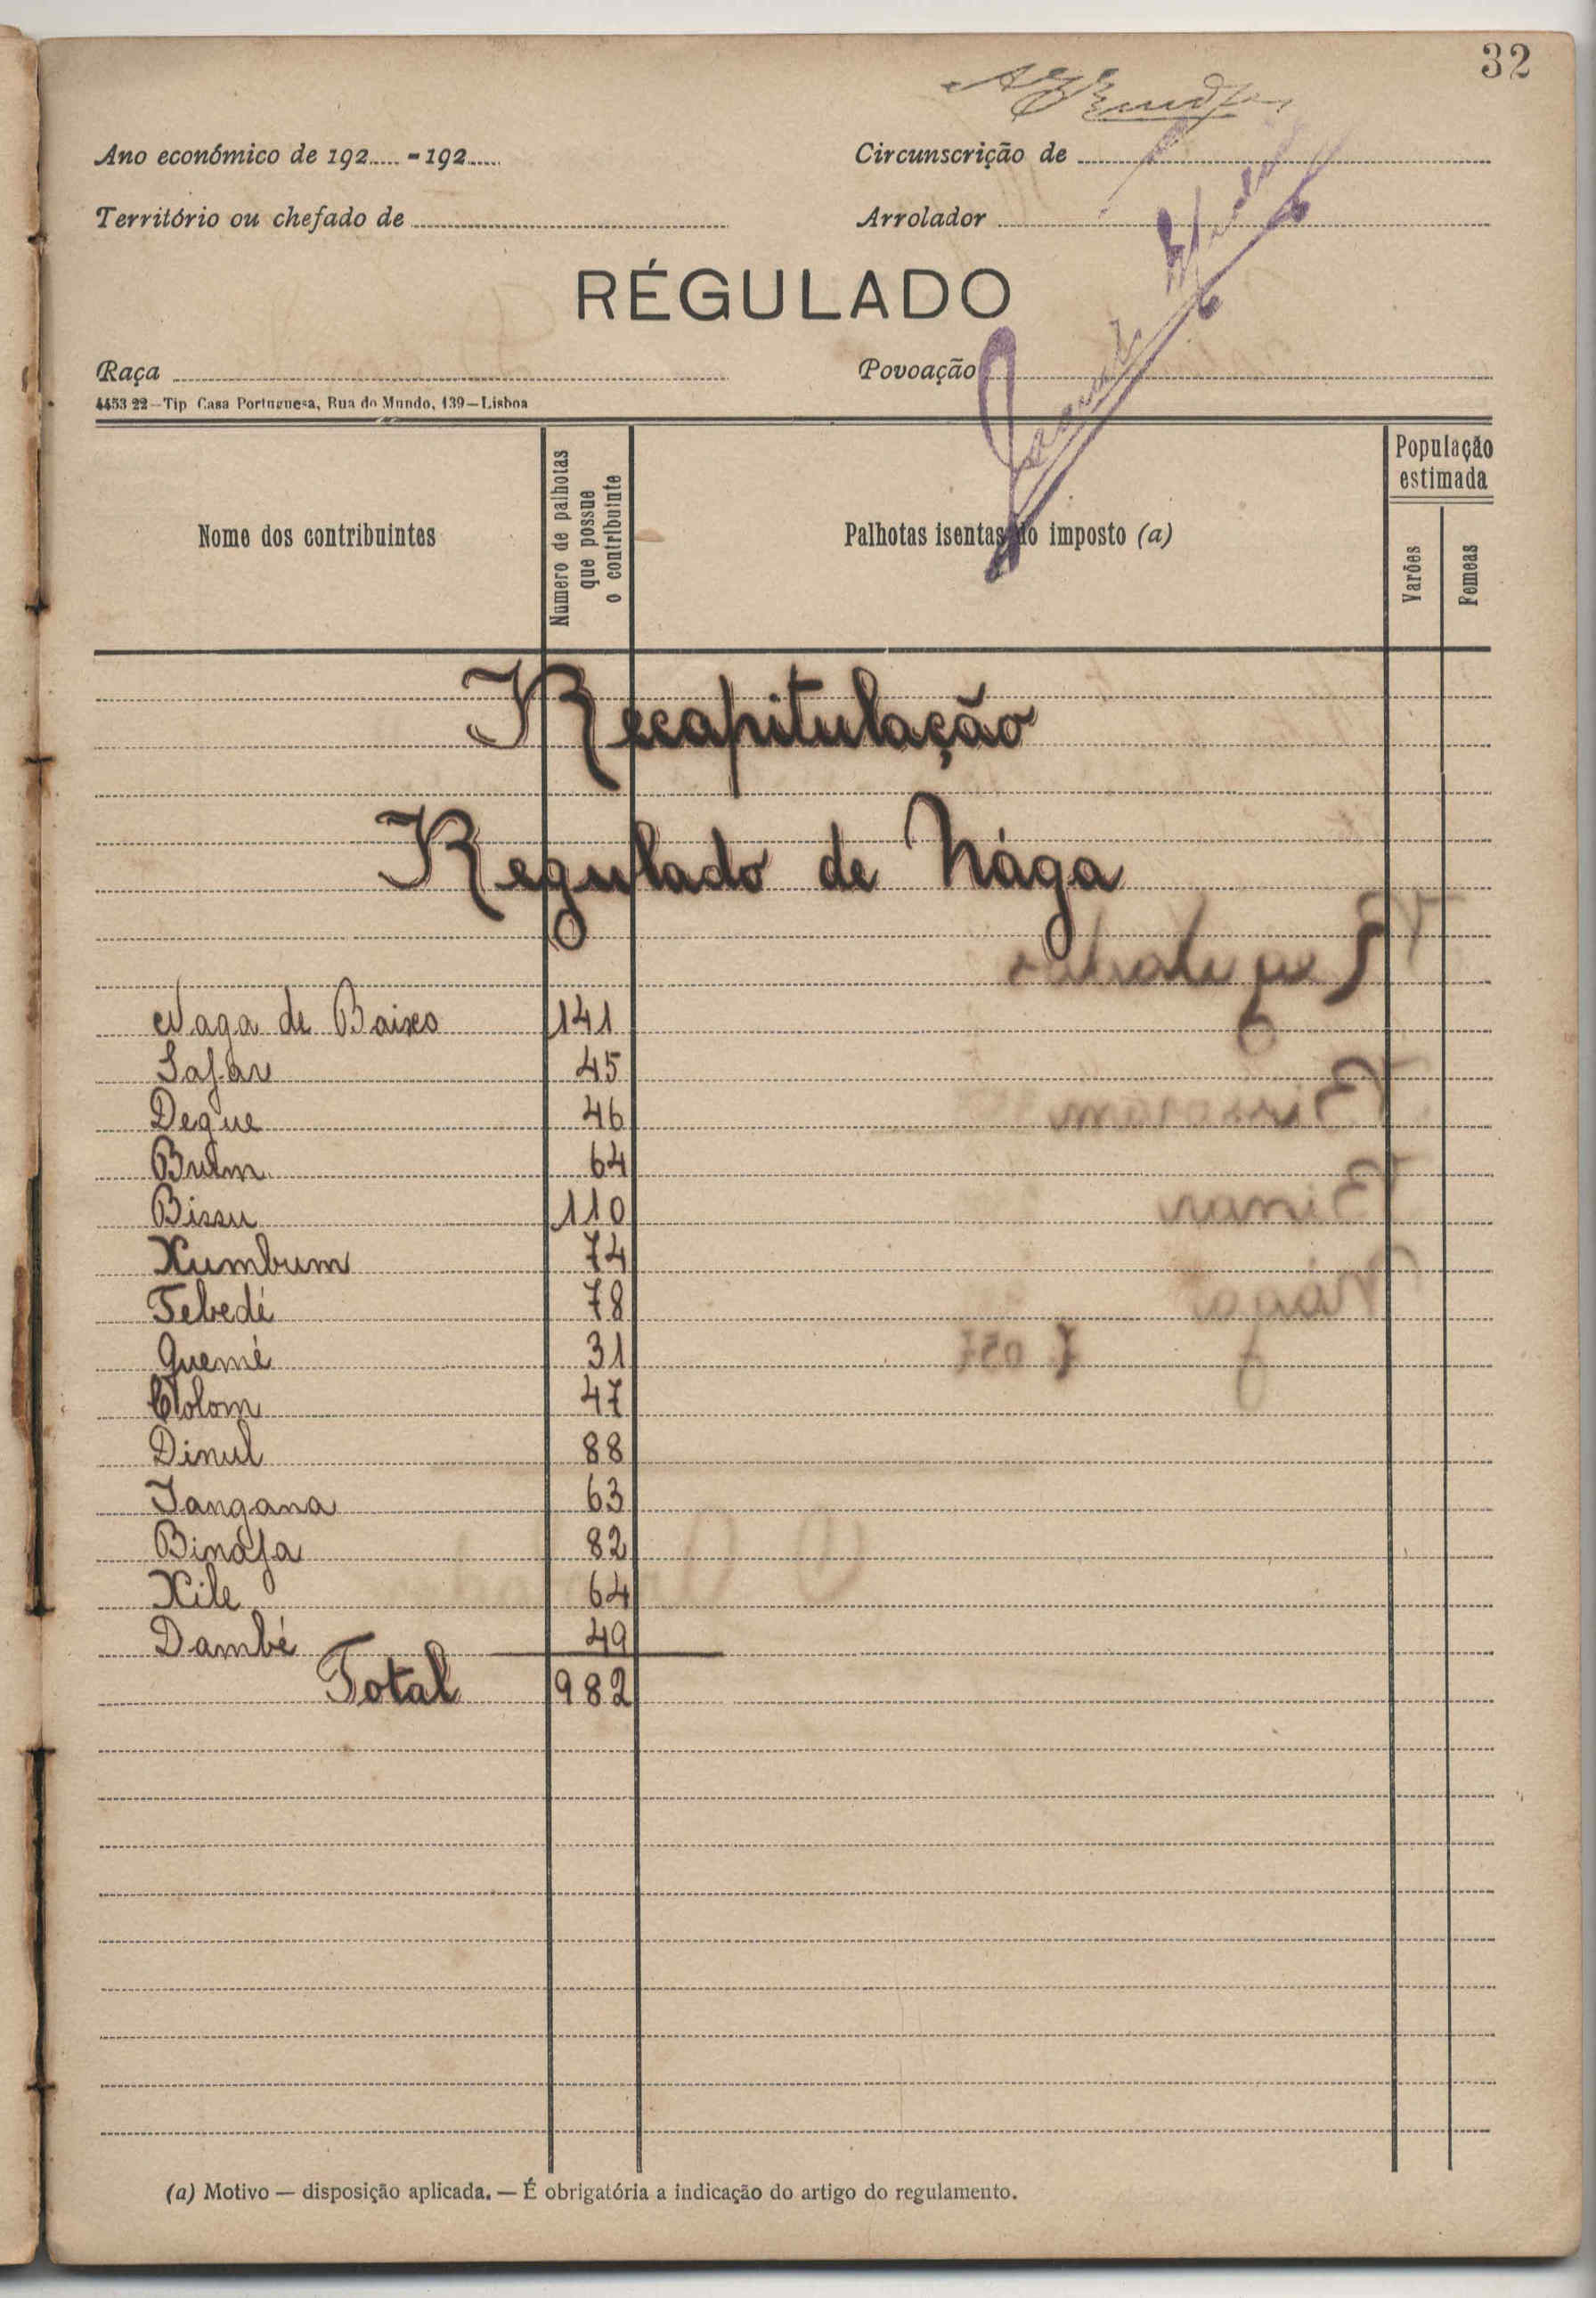 32
Ano económico de 192..... - 192.....
Circunscrição de
Território ou chefado de
Arrolador
RÉGULADO
Raça
Povoação
4453 22—Tip Casa Portuguesa, Rua do Mundo, 139—Lisboa
Nome dos contribuintes
Número de palhotas que possue o contribuinte
Palhotas isentas do imposto (a)
População estimada
Varões
Femeas
Recapitulação
Regulado de Nága
Naga de Baixo 141
Safar 45
Degue 46
Bulm 64
Bissu 110
Xumbum 74
Tebedé 78
Quemé 31
Colom 47
Dinul 88
Jangana 63
Bináfa 82
Xile 64
Dambé 49
Total 982
(a) Motivo — disposição aplicada. — É obrigatória a indicação do artigo do regulamento.